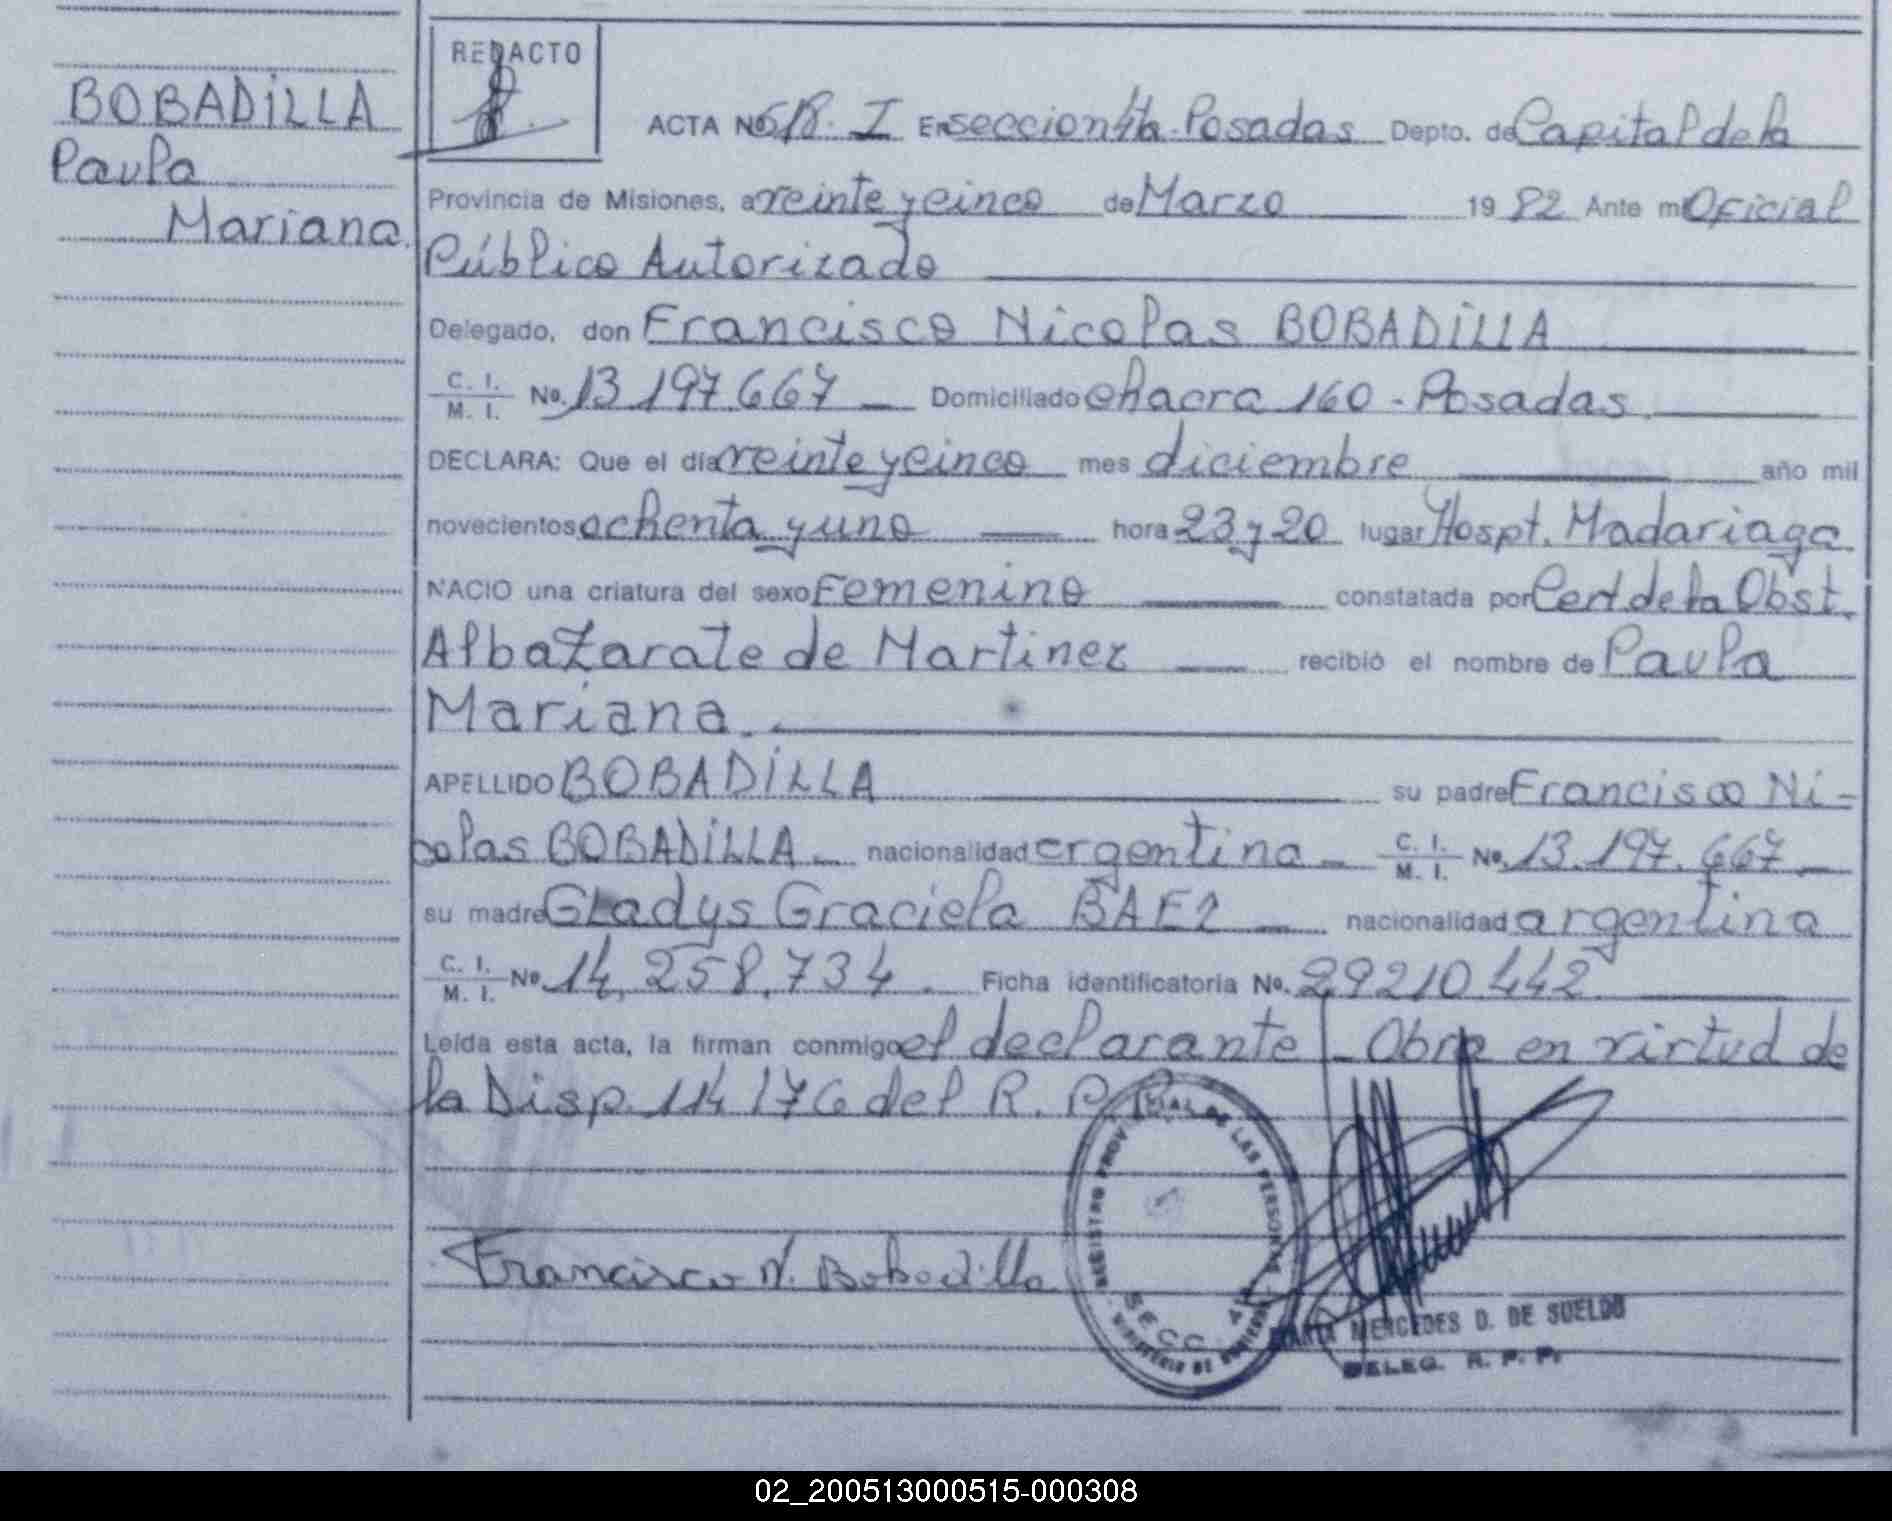 BOBADILLA
Paula
Mariana.
REDACTO
ACTA No 618. I En seccion 4ta. Posadas Depto. de Capital de la
Provincia de Misiones, a veinte y cinco de Marzo 19 82 Ante mi Oficial
Público Autorizado
Delegado, don Francisco Nicolas BOBADILLA
C. I. / M. I. No. 13 197.667 Domiciliado chacra 160 - Posadas.
DECLARA: Que el día veinte y cinco mes diciembre año mil
novecientos ochenta y uno hora 23 y 20 lugar Hospt. Madariaga
NACIO una criatura del sexo Femenino constatada por Cert. de la Obst.
Alba Zarate de Martinez recibió el nombre de Paula
Mariana.
APELLIDO BOBADILLA su padre Francisco Ni-
colas BOBADILLA nacionalidad argentina C. I. / M. I. No. 13.197.667
su madre Gladys Graciela BAEZ nacionalidad argentina
C. I. / M. I. No 14.258.734. Ficha identificatoria No. 29210442
Leída esta acta, la firman conmigo el declarante - Obra en virtud de
la Disp. 114/76 del R. P. P.
REGISTRO PROVINCIAL DE LAS PERSONAS
SECC. 4ta
MINISTERIO DE GOBIERNO
Francisco N. Bobadilla
MERCEDES D. DE SUELDO
DELEG. R. P. P.
02_200513000515-000308